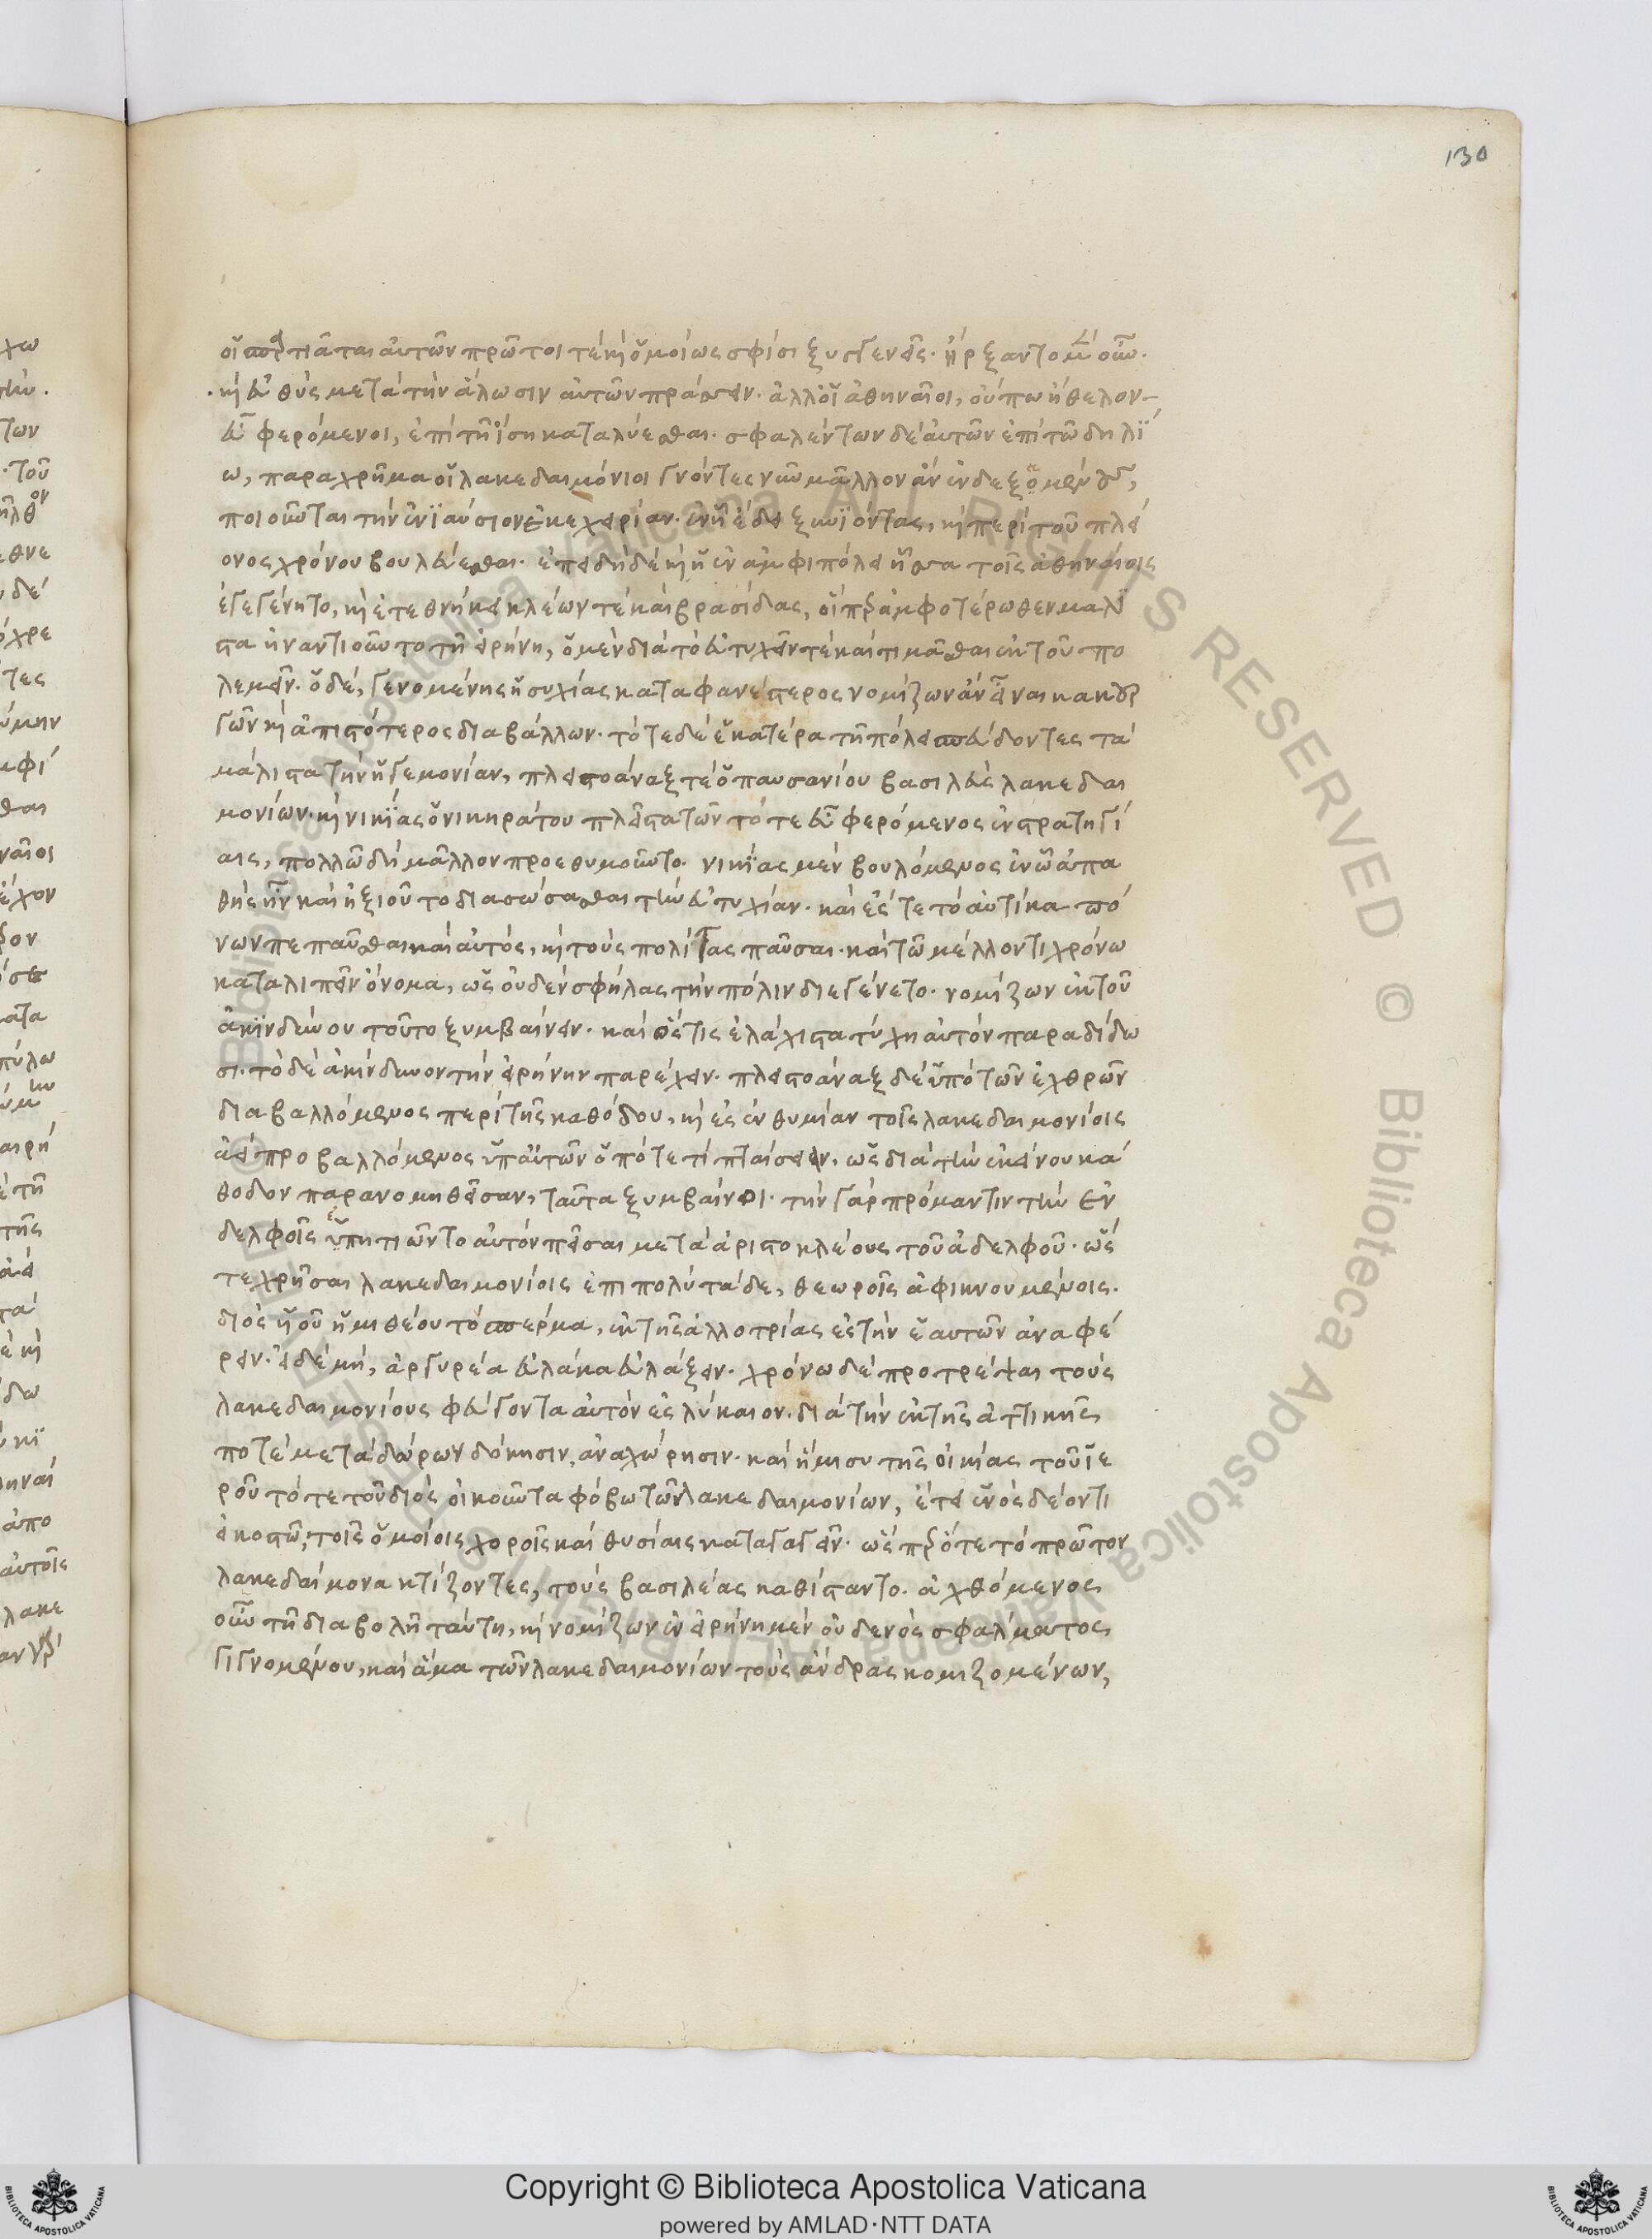 130
οἱ σπαρτιᾶται αὐτῶν πρῶτοί τε καὶ ὁμοίως σφίσι ξυγγενεῖς· ἤρξαντο μὲν οὖν·
καὶ εὐθὺς μετὰ τὴν ἅλωσιν αὐτῶν πράσσειν· ἀλλ' οἱ ἀθηναῖοι, οὔπω ἤθελον
εὖ φερόμενοι, ἐπὶ τῇ ἴσῃ καταλύεσθαι· σφαλέντων δὲ αὐτῶν ἐπὶ τῶ δηλί
ω, παραχρῆμα οἱ λακεδαιμόνιοι γνόντες νῦν μᾶλλον ἂν ἐνδεξομένους,
ποιοῦνται τὴν ἐνιαύσιον ἐκεχειρίαν· ἐν ᾗ ἔδει ξυνιόντας, καὶ περὶ τοῦ πλεί
ονος χρόνου βουλεύεσθαι· ἐπειδὴ δὲ καὶ ἡ ἐν ἀμφιπόλει ἧσσα τοῖς ἀθηναίοις
ἐγεγένητο, καὶ ἐτεθνήκει κλέων τὲ καὶ βρασίδας, οἵπερ ἀμφοτέρωθεν μάλι
στα ἠναντιοῦντο τῇ εἰρήνῃ, ὁ μὲν διὰ τὸ εὐτυχεῖν τὲ καὶ τιμᾶσθαι ἐκ τοῦ πο
λεμεῖν· ὁ δὲ, γενομένης ἡσυχίας καταφανέστερος νομίζων ἂν εἶναι κακουρ
γῶν καὶ ἀπιστότερος διαβάλλων· τότε δὲ ἑκατέρα τῇ πόλει σπεύδοντες τὰ
μάλιστα τὴν ἡγεμονίαν, πλειστοάναξ τὲ ὁ παυσανίου βασιλεὺς λακεδαι
μονίων· καὶ νικίας ὁ νικηράτου πλεῖστα τῶν τότε εὖ φερόμενος ἐν στρατηγί
αις, πολλῶ δὴ μᾶλλον προεθυμοῦντο· νικίας μὲν βουλόμενος ἐν ᾧ ἀπα
θὴς ἦν καὶ ἠξιοῦτο διασώσασθαι τὴν εὐτυχίαν· καὶ ἔς τε τὸ αὐτίκα πό
νων πεπαῦσθαι καὶ αὐτός, καὶ τοὺς πολίτας παῦσαι· καὶ τῶ μέλλοντι χρόνω
καταλιπεῖν ὄνομα, ὡς οὐδὲν σφήλας τὴν πόλιν διεγένετο· νομίζων ἐκ τοῦ
ἀκινδύνου τοῦτο ξυμβαίνειν· καὶ ὅστις ἐλάχιστα τύχῃ αὐτὸν παραδίδω
σι· τὸ δὲ ἀκίνδυνον τὴν εἰρήνην παρέχειν· πλειστοάναξ δὲ ὑπὸ τῶν ἐχθρῶν
διαβαλλόμενος περὶ τῆς καθόδου, καὶ ἐς ἐνθυμίαν τοῖς λακεδαιμονίοις
ἀεὶ προβαλλόμενος ὑπ' αὐτῶν ὁπότε τί πταίσειαν, ὡς διὰ τὴν ἐκείνου κά
θοδον παρανομηθεῖσαν, ταῦτα ξυμβαίνοι· τὴν γὰρ πρόμαντιν τὴν ἐν
δελφοῖς ἐπῃτιῶντο αὐτὸν πεῖσαι μετὰ ἀριστοκλέους τοῦ ἀδελφοῦ· ὥς
τε χρῆσαι λακεδαιμονίοις ἐπιπολὺ τάδε, θεωροῖς ἀφικνουμένοις·
διὸς υἱοῦ ἡμιθέου τὸ σπέρμα, ἐκ τῆς ἀλλοτρίας ἐς τὴν ἑαυτῶν ἀναφέ
ρειν· εἰ δὲ μή, ἀργυρέα εὐλάκα εὐλάξειν· χρόνω δὲ προτρέψαι τοὺς
λακεδαιμονίους φεύγοντα αὐτὸν ἐς λύκαιον· διὰ τὴν ἐκ τῆς ἀττικῆς
ποτὲ μετὰ δώρων δόκησιν, ἀναχώρησιν· καὶ ἥμισυ τῆς οἰκίας τοῦ ἱε
ροῦ τότε τοῦ διὸς οἰκοῦντα φόβω τῶν λακεδαιμονίων, ἔτει ἑνὸς δέοντι
εἰκοστῶ, τοῖς ὁμοίοις χοροῖς καὶ θυσίαις καταγαγεῖν· ὥσπερ ὅτε τὸ πρῶτον
λακεδαίμονα κτίζοντες, τοὺς βασιλέας καθίσταντο· ἀχθόμενος
οὖν τῇ διαβολῇ ταύτῃ, καὶ νομίζων ἐν εἰρήνῃ μὲν οὐδενὸς σφάλματος
γιγνομένου, καὶ ἅμα τῶν λακεδαιμονίων τοὺς ἄνδρας κομιζομένων,
Copyright © Biblioteca Apostolica Vaticana
powered by AMLAD·NTT DATA